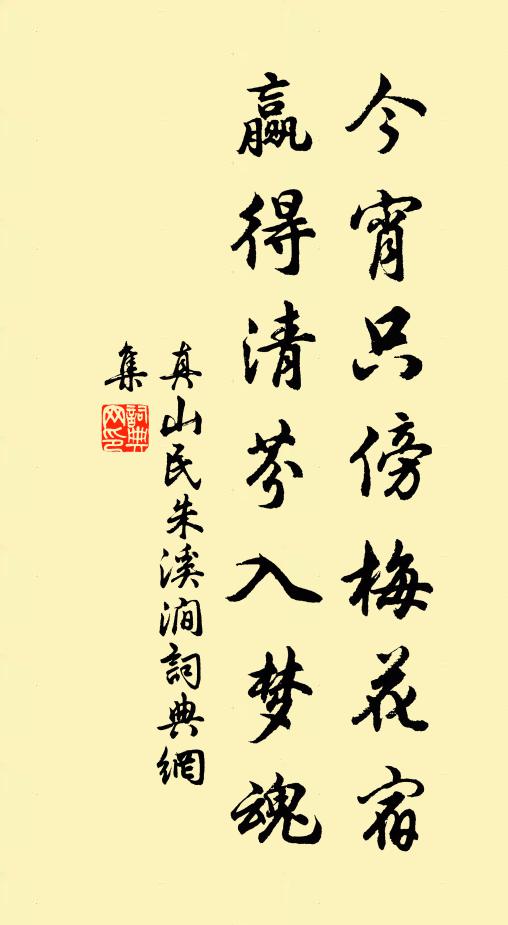 今宵只傍梅花宿
赢得清芬入梦魂
真山民朱溪涧詞典網
集
詞典
网印